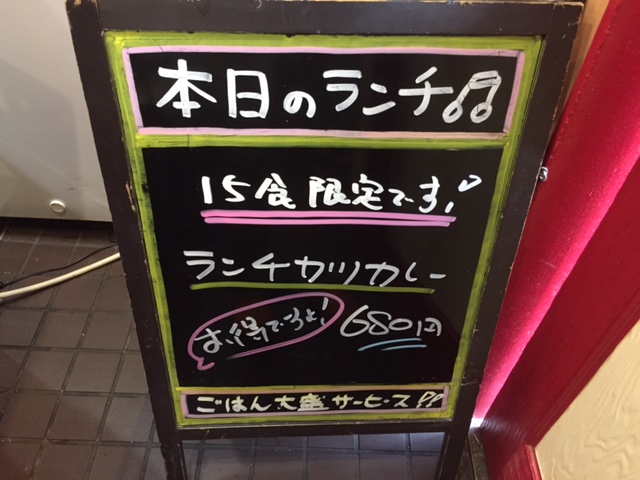 本日のランチ♫
15食限定です!
ランチカツカレー
お得ですよ! 680円
ごはん大盛サービス!!